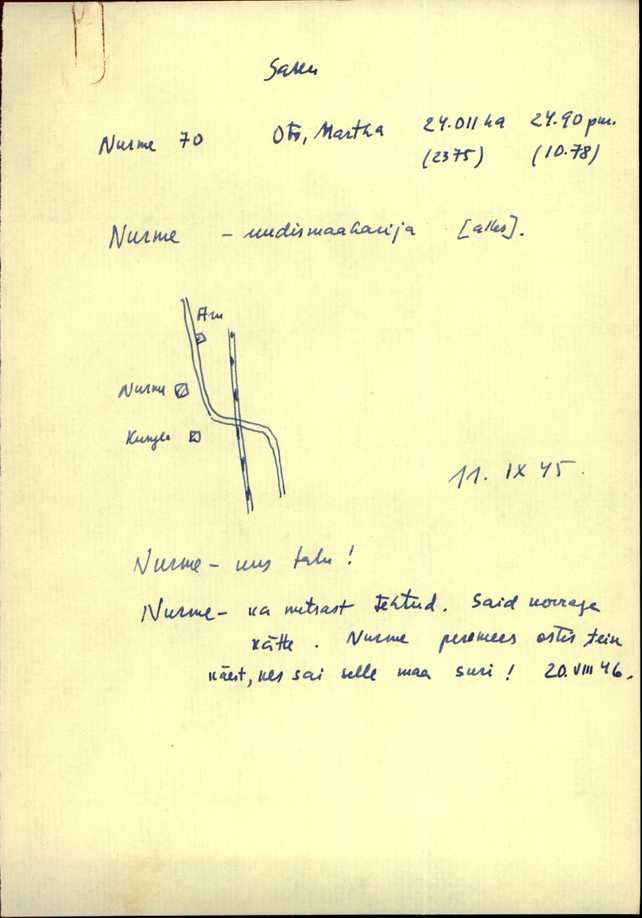 Saku
Nurme 70 Oto, Martha 24.011 ha 24.90 pm.
(2375) (10.78)
Nurme – uudismaaharija [alles].
Nurme
Kungla
11. IX 45.
Nurme – uus talu!
Nurme – ka metsast tehtud. Said korraga
kätte. Nurme peremees ostis tein
käest, kes sai selle maa suri! 20. VIII 46.